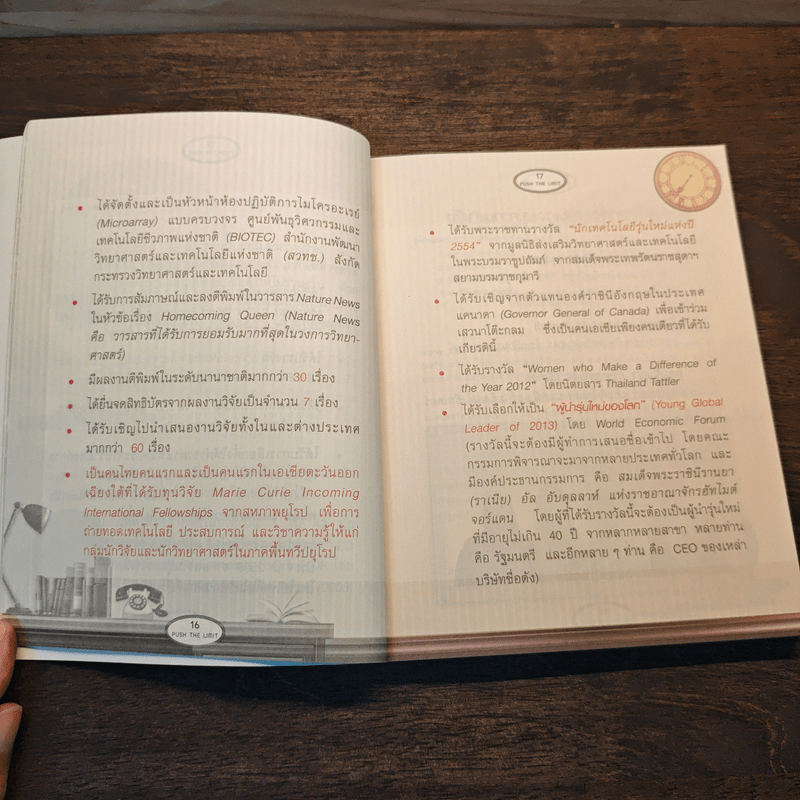 • ได้จัดตั้งและเป็นหัวหน้าห้องปฏิบัติการไมโครอะเรย์
(Microarray) แบบครบวงจร ศูนย์พันธุวิศวกรรมและ
เทคโนโลยีชีวภาพแห่งชาติ (BIOTEC) สำนักงานพัฒนา
วิทยาศาสตร์และเทคโนโลยีแห่งชาติ (สวทช.) สังกัด
กระทรวงวิทยาศาสตร์และเทคโนโลยี
• ได้รับการสัมภาษณ์และลงตีพิมพ์ในวารสาร Nature News
ในหัวข้อเรื่อง Homecoming Queen (Nature News
คือ วารสารที่ได้รับการยอมรับมากที่สุดในวงการวิทยา-
ศาสตร์)
• มีผลงานตีพิมพ์ในระดับนานาชาติมากกว่า 30 เรื่อง
• ได้ยื่นจดสิทธิบัตรจากผลงานวิจัยเป็นจำนวน 7 เรื่อง
• ได้รับเชิญไปนำเสนองานวิจัยทั้งในและต่างประเทศ
มากกว่า 60 เรื่อง
• เป็นคนไทยคนแรกและเป็นคนแรกในเอเชียตะวันออก
เฉียงใต้ที่ได้รับทุนวิจัย Marie Curie Incoming
International Fellowships จากสหภาพยุโรป เพื่อการ
ถ่ายทอดเทคโนโลยี ประสบการณ์ และวิชาความรู้ให้แก่
กลุ่มนักวิจัยและนักวิทยาศาสตร์ในภาคพื้นทวีปยุโรป
16
PUSH THE LIMIT
17
PUSH THE LIMIT
• ได้รับพระราชทานรางวัล “นักเทคโนโลยีรุ่นใหม่แห่งปี
2554” จากมูลนิธิส่งเสริมวิทยาศาสตร์และเทคโนโลยี
ในพระบรมราชูปถัมภ์ จากสมเด็จพระเทพรัตนราชสุดาฯ
สยามบรมราชกุมารี
• ได้รับเชิญจากตัวแทนองค์ราชินีอังกฤษในประเทศ
แคนาดา (Governor General of Canada) เพื่อเข้าร่วม
เสวนาโต๊ะกลม ซึ่งเป็นคนเอเชียเพียงคนเดียวที่ได้รับ
เกียรตินี้
• ได้รับรางวัล “Women who Make a Difference of
the Year 2012” โดยนิตยสาร Thailand Tattler
• ได้รับเลือกให้เป็น “ผู้นำรุ่นใหม่ของโลก” (Young Global
Leader of 2013) โดย World Economic Forum
(รางวัลนี้จะต้องมีผู้ทำการเสนอชื่อเข้าไป โดยคณะ
กรรมการพิจารณาจะมาจากหลายประเทศทั่วโลก และ
มีองค์ประธานกรรมการ คือ สมเด็จพระราชินีรานยา
(ราเนีย) อัล อับดุลลาห์ แห่งราชอาณาจักรฮัทไมต์
จอร์แดน โดยผู้ที่ได้รับรางวัลนี้จะต้องเป็นผู้นำรุ่นใหม่
ที่มีอายุไม่เกิน 40 ปี จากหลากหลายสาขา หลายท่าน
คือ รัฐมนตรี และอีกหลาย ๆ ท่าน คือ CEO ของเหล่า
บริษัทชื่อดัง)